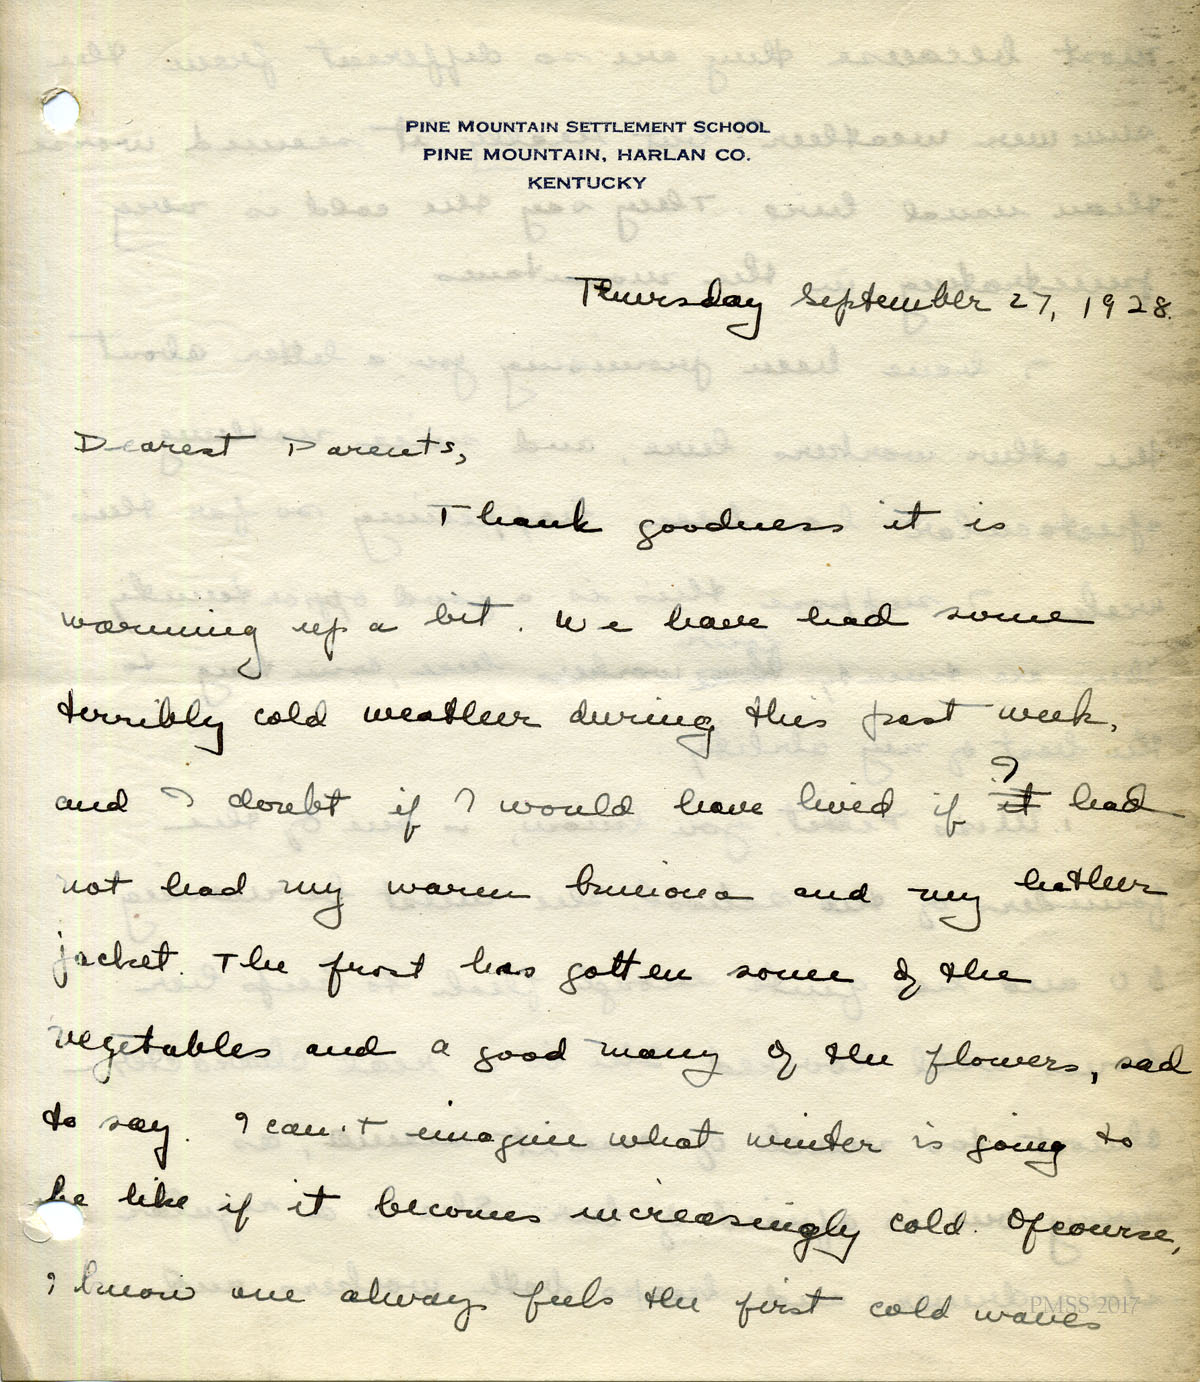 PINE MOUNTAIN SETTLEMENT SCHOOL
PINE MOUNTAIN, HARLAN CO.
KENTUCKY
Thursday September 27, 1928.
Dearest Parents,
Thank goodness it is
warming up a bit. We have had some
terribly cold weather during this past week,
and I doubt if I would have lived if I it had
not had my warm and my leather
jacket. The frost has gotten some of the
vegetables and a good many of the flowers, sad
to say. I can't imagine what winter is going to
be like if it becomes increasingly cold. Ofcourse,
I know one always feels the first cold waves
PMSS 2017